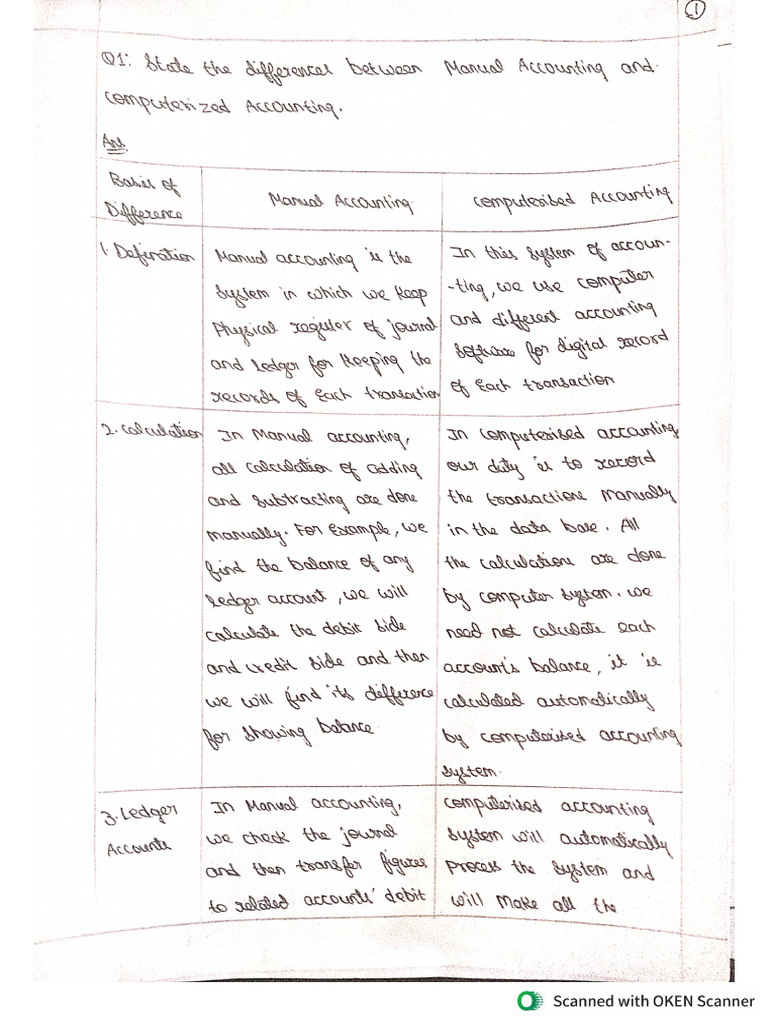 1
Q1: State the differences between Manual Accounting and
computerized Accounting.
Ans.
Basis of
Difference
Manual Accounting
Computerised Accounting
1. Defination
Manual accounting is the
system in which we keep
Physical register of journal
and ledger for keeping the
records of each transaction
In this system of accoun-
-ting, we use computer
and different accounting
software for digital record
of each transaction
2. Calculation
In Manual accounting,
all calculation of adding
and subtracting are done
manually. For example, we
find the balance of any
ledger account, we will
calculate the debit side
and credit side and then
we will find its difference
for showing balance.
In computerised accounting
our duty is to record
the transactions manually
in the data base. All
the calculations are done
by computer system. we
need not calculate each
account's balance, it is
calculated automatically
by computerised accounting
system.
3. Ledger
Accounts
In Manual accounting,
we check the journal
and then transfer figures
to related accounts' debit
Computerised accounting
system will automatically
process the system and
will make all the
Scanned with OKEN Scanner